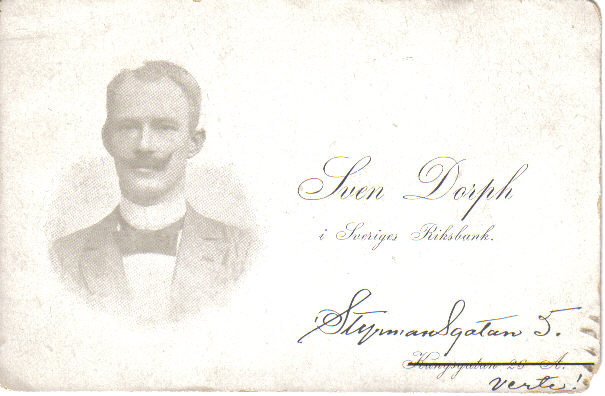 Sven Dorph
i Sveriges Riksbank.
Styrmansgatan 5.
Kungsgatan 26 A.
verte!